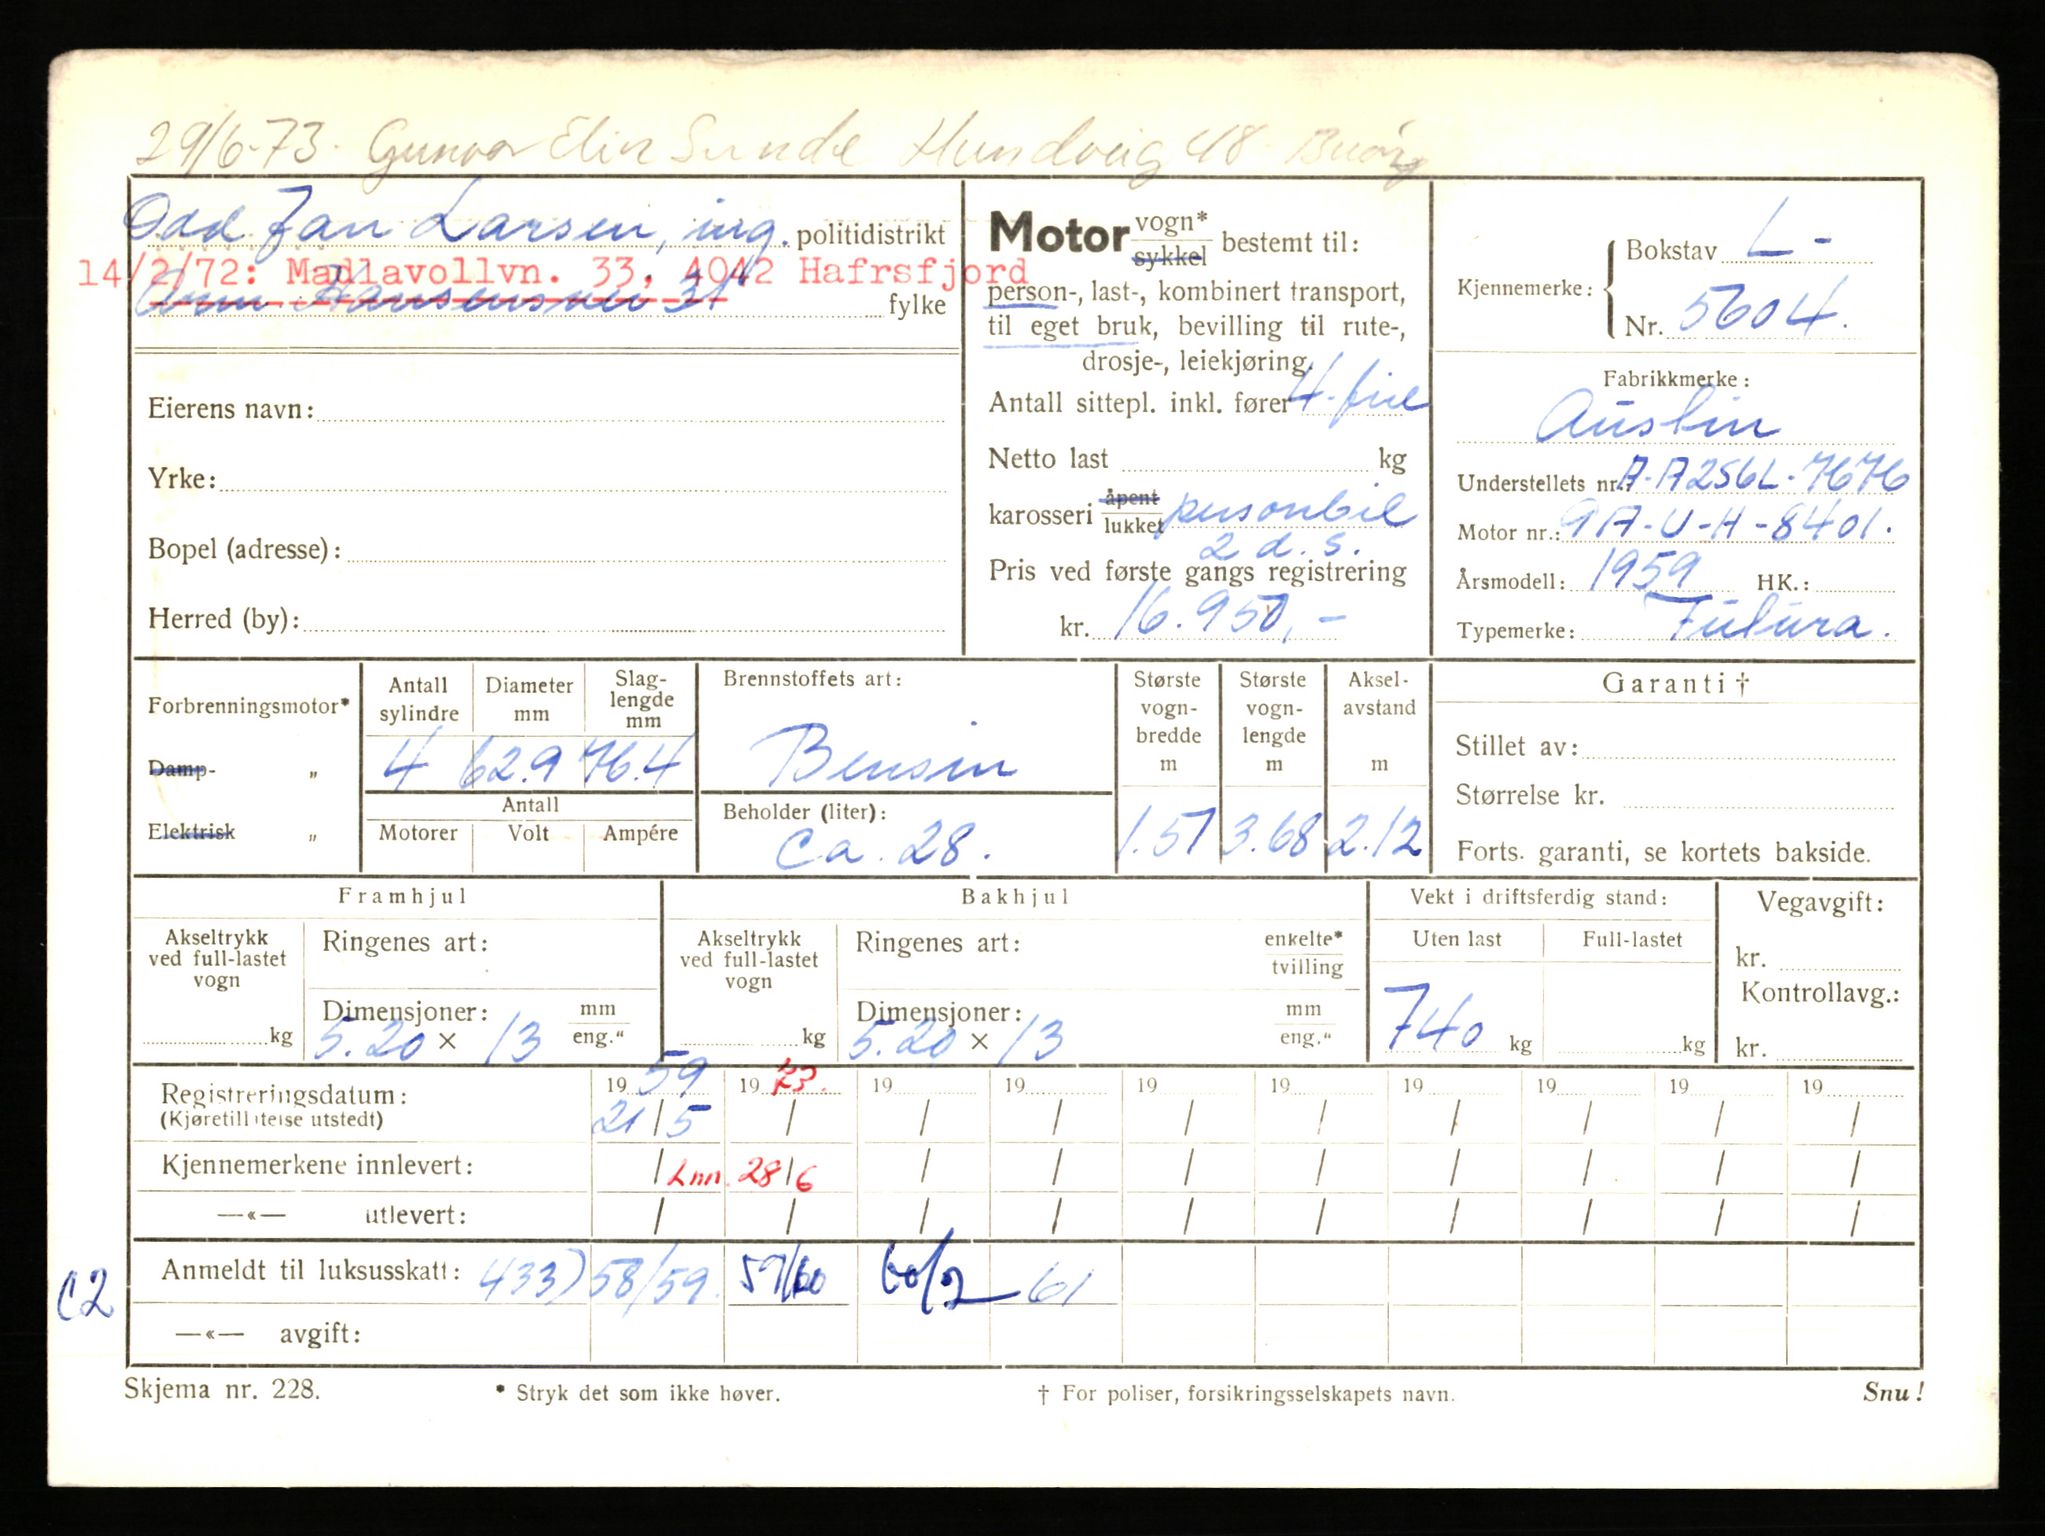 29/6-73. Gunvor Elin Sunde Hundvåg 48 Buøy
Odd Jan Larsen, ing. politidistrikt
14/2/72: Madlavollvn. 33, 4042 Hafrsfjord
31 fylke
Eierens navn:
Yrke:
Bopel (adresse):
Herred (by):
Motor vogn* sykkel bestemt til:
person-, last-, kombinert transport,
til eget bruk, bevilling til rute-,
drosje-, leiekjøring.
Antall sittepl. inkl. fører 4. fire
Netto last kg
karosseri åpent lukket personbil
2 d. s.
Pris ved første gangs registrering
kr. 16.950,-
Kjennemerke: Bokstav L-
Nr. 5604.
Fabrikkmerke:
Austin
Understellets nr.: A-A2S6L-7676
Motor nr.: 9A-U-H-8401.
Årsmodell: 1959 HK.:
Typemerke: Futura.
Forbrenningsmotor*
Damp- „
Elektrisk „
Antall sylindre
Diameter mm
Slag-
lengde
mm
4 62.9 76.4
Antall
Motorer Volt Ampére
Brennstoffets art:
Bensin
Beholder (liter):
ca. 28.
Største
vogn-
bredde
m
1.57
Største
vogn-
lengde
m
3.68
Aksel-
avstand
m
2.12
Garanti †
Stillet av:
Størrelse kr.
Forts. garanti, se kortets bakside.
Framhjul
Akseltrykk
ved full-lastet
vogn
kg
Ringenes art:
Dimensjoner: mm
5.20 × 13 eng."
Bakhjul
Akseltrykk
ved full-lastet
vogn
kg
Ringenes art: enkelte*
tvilling
Dimensjoner: mm
5.20 × 13 eng."
Vekt i driftsferdig stand:
Uten last Full-lastet
740 kg kg
Vegavgift:
kr.
Kontrollavg.:
kr.
Registreringsdatum: 19 59 19 73. 19 19 19 19 19 19 19 19
(Kjøretillatelse utstedt) 21/5 / / / / / / / / /
Kjennemerkene innlevert: / Inn. 28/6 / / / / / / / /
—«— utlevert: / / / / / / / / / /
Anmeldt til luksusskatt: 433) 58/59. 59/60 60/2 61
C2
—«— avgift:
Skjema nr. 228. * Stryk det som ikke høver. † For poliser, forsikringsselskapets navn. Snu!